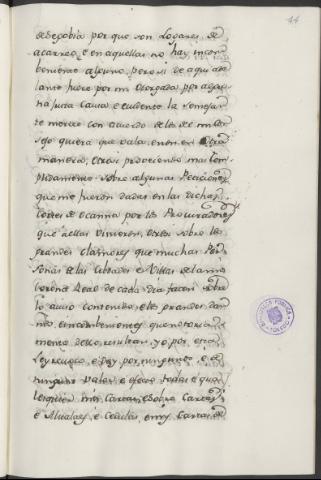 44
de Segobia por que son Logares de
acarreo, e en aquellas no hay incon-
beniente alguno, pero si de aqui ade-
lante fuere por mi otorgada por algu-
na justa causa e evidente la semejan-
te merced con acuerdo de los del mi con-
sejo quiero que vala, e non en otra
manera, otrosi proveiendo mas com-
plidamente sobre algunas Peticiones
que me fueron dadas en las dichas
Cortes de Ocanna por los Procuradores
que a ellas vinieron, otrosi sobre los
grandes clamores que muchas Per-
sonas de las Cibdades e Villas de la mi
Corona Real de cada dia facen sobre
lo suso contenido, e los grandes da-
nnos, e inconbenientes que notoria-
mente dello resultan, yo por esta
Ley revoco, e doy por ningunas, e de
ningund valor e efecto todas e qua-
lesquier mis Cartas, e Sobre Cartas
e Alvalaes, e Cedulas, e mis Cartas de
BIBLIOTECA PUBLICA TOLEDO